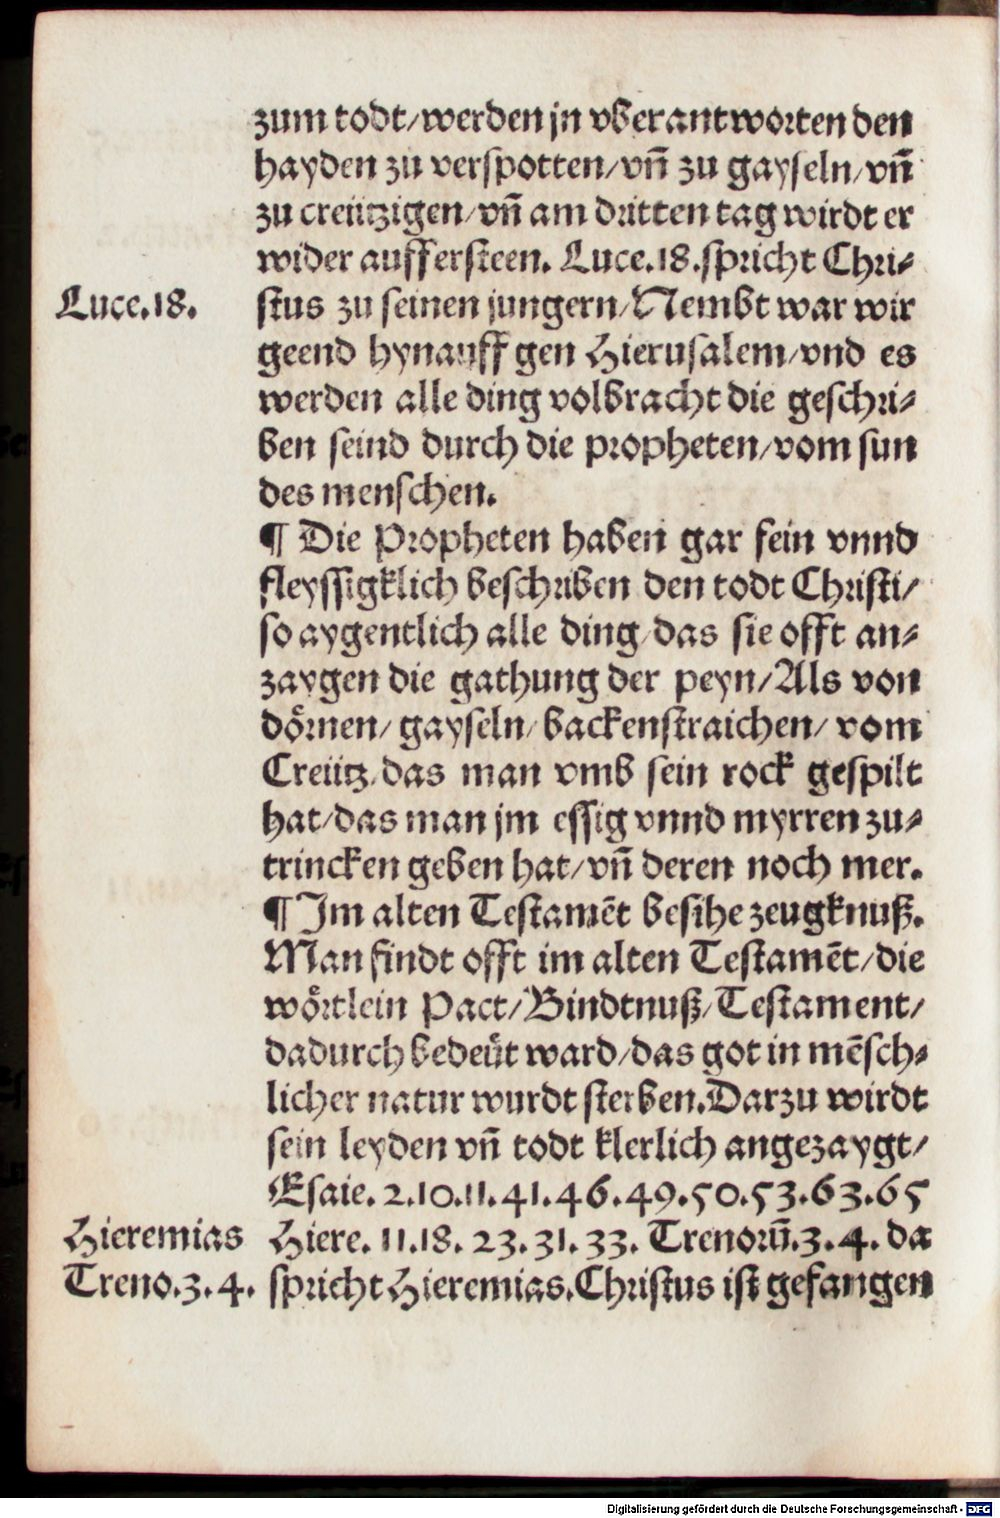 zum todt/werden jn vberantworten den
hayden zu verspotten/vn̄ zu gayseln/vn̄
zu creützigen/vn̄ am dritten tag wirdt er
wider auffersteen. Luce.18.spricht Chri⸗
Luce.18.
stus zu seinen jungern/Nembt war wir
geend hynauff gen Hierusalem/vnd es
werden alle ding volbracht die geschri⸗
ben seind durch die propheten/vom sun
des menschen.
¶ Die Propheten haben gar fein vnnd
fleyssigklich beschriben den todt Christi/
so aygentlich alle ding/das sie offt an⸗
zaygen die gathung der peyn/Als von
dörnen/gayseln/backenstraichen/vom
Creütz/das man vmb sein rock gespilt
hat/das man jm essig vnnd myrren zu⸗
trincken geben hat/vn̄ deren noch mer.
¶ Im alten Testamēt besihe zeugknuß.
Man findt offt im alten Testamēt/die
wörtlein Pact/Bindtnuß/Testament/
dadurch bedeüt ward/das got in mēsch⸗
licher natur wurdt sterben.Darzu wirdt
sein leyden vn̄ todt klerlich angezaygt/
Esaie. 2.10.11.41.46.49.50.53.63.65
Hieremias
Hiere. 11.18. 23.31. 33. Trenorū.3.4. da
Treno.3.4.
spricht Hieremias.Christus ist gefangen
Digitalisierung gefördert durch die Deutsche Forschungsgemeinschaft - DFG